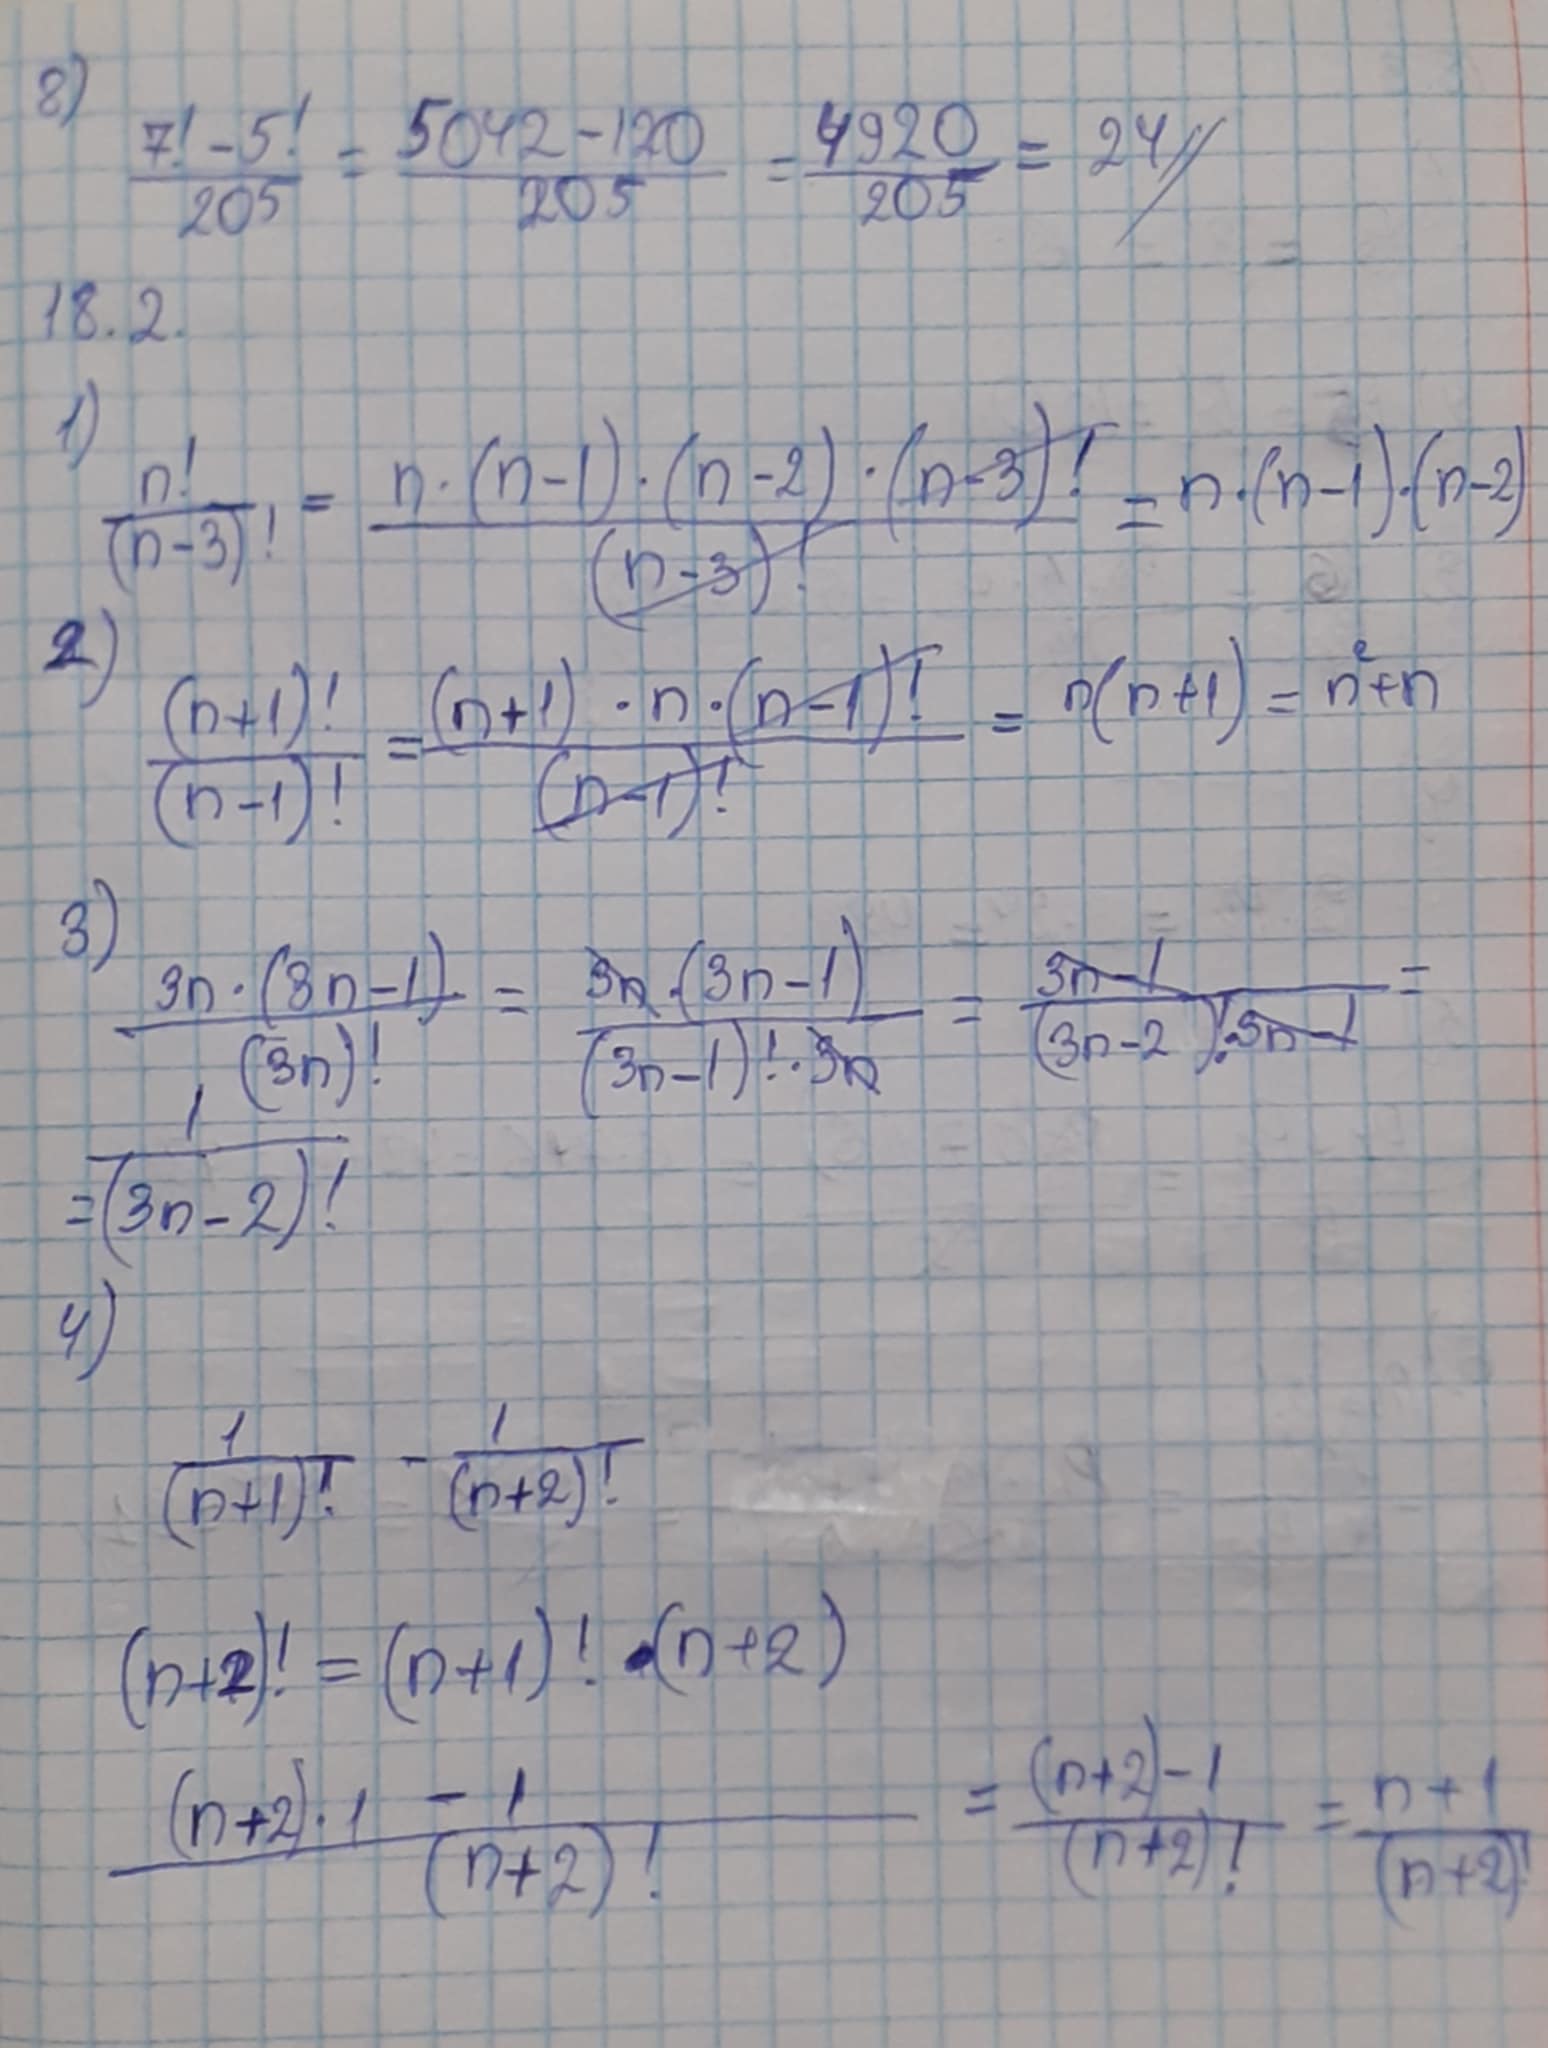 8) (7! - 5!)/205 = (5042 - 120)/205 = 4920/205 = 24//
18.2.
1) n!/(n-3)! = (n·(n-1)·(n-2)·(n-3)!)/(n-3)! = n·(n-1)·(n-2)
2) (n+1)!/(n-1)! = ((n+1)·n·(n-1)!)/(n-1)! = n(n+1) = n²+n
3) (3n·(3n-1))/(3n)! = (3n·(3n-1))/((3n-1)!·3n) = (3n-1)/((3n-2)!·3n-1) =
= 1/(3n-2)!
4)
1/(n+1)! - 1/(n+2)!
(n+2)! = (n+1)!·(n+2)
((n+2)·1 - 1)/(n+2)! = ((n+2)-1)/(n+2)! = (n+1)/(n+2)!